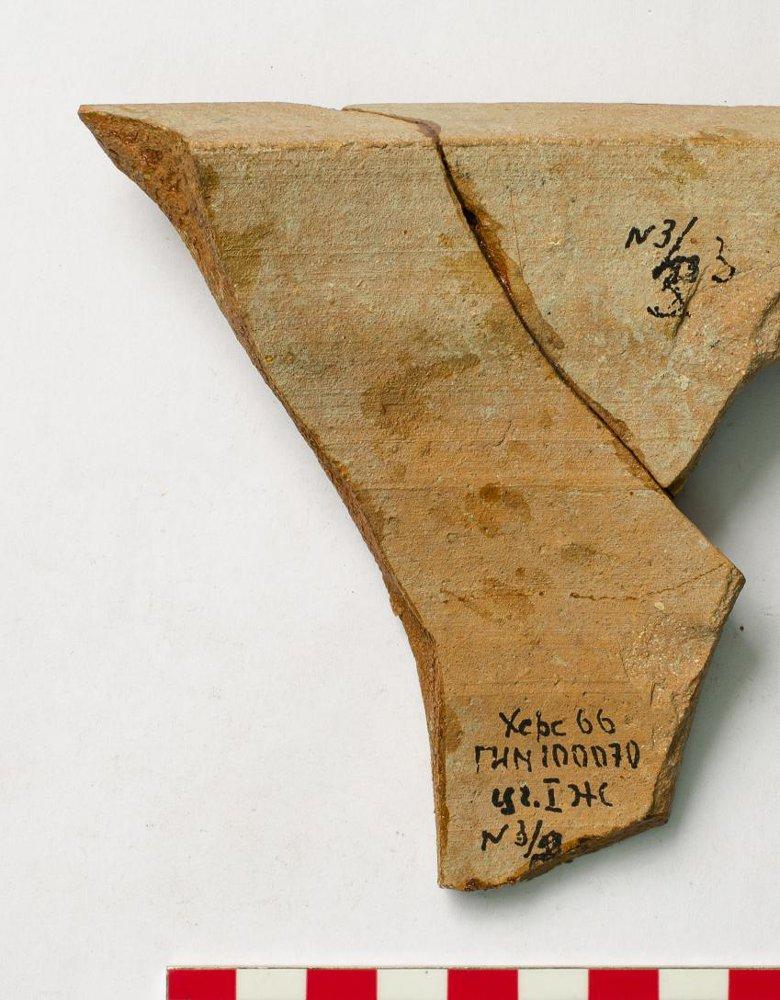 N 3/
3
Херс 66
ГИМ 100070
цг. I ЖС
N 3/